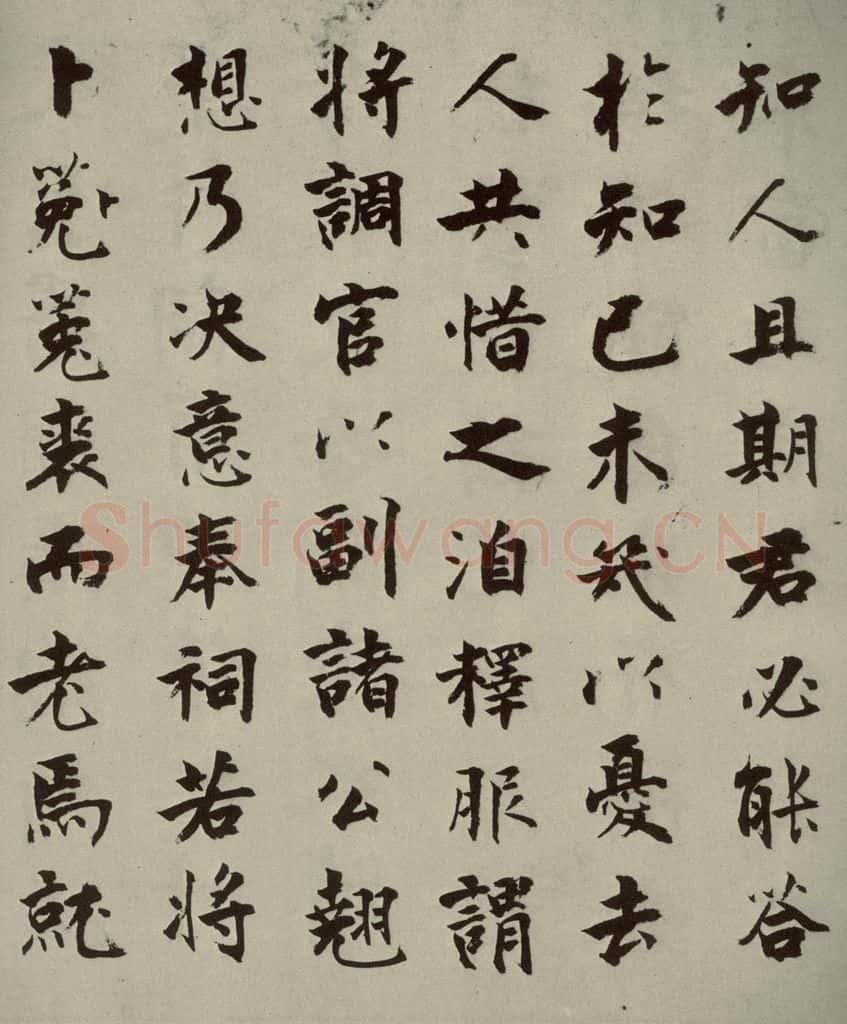 知人且期君必能答
於知己未幾以憂去
人共惜之洎釋服謂
將調官以副諸公翹
想乃決意奉祠若將
卜菟菟裘而老焉就
Shufawang.CN